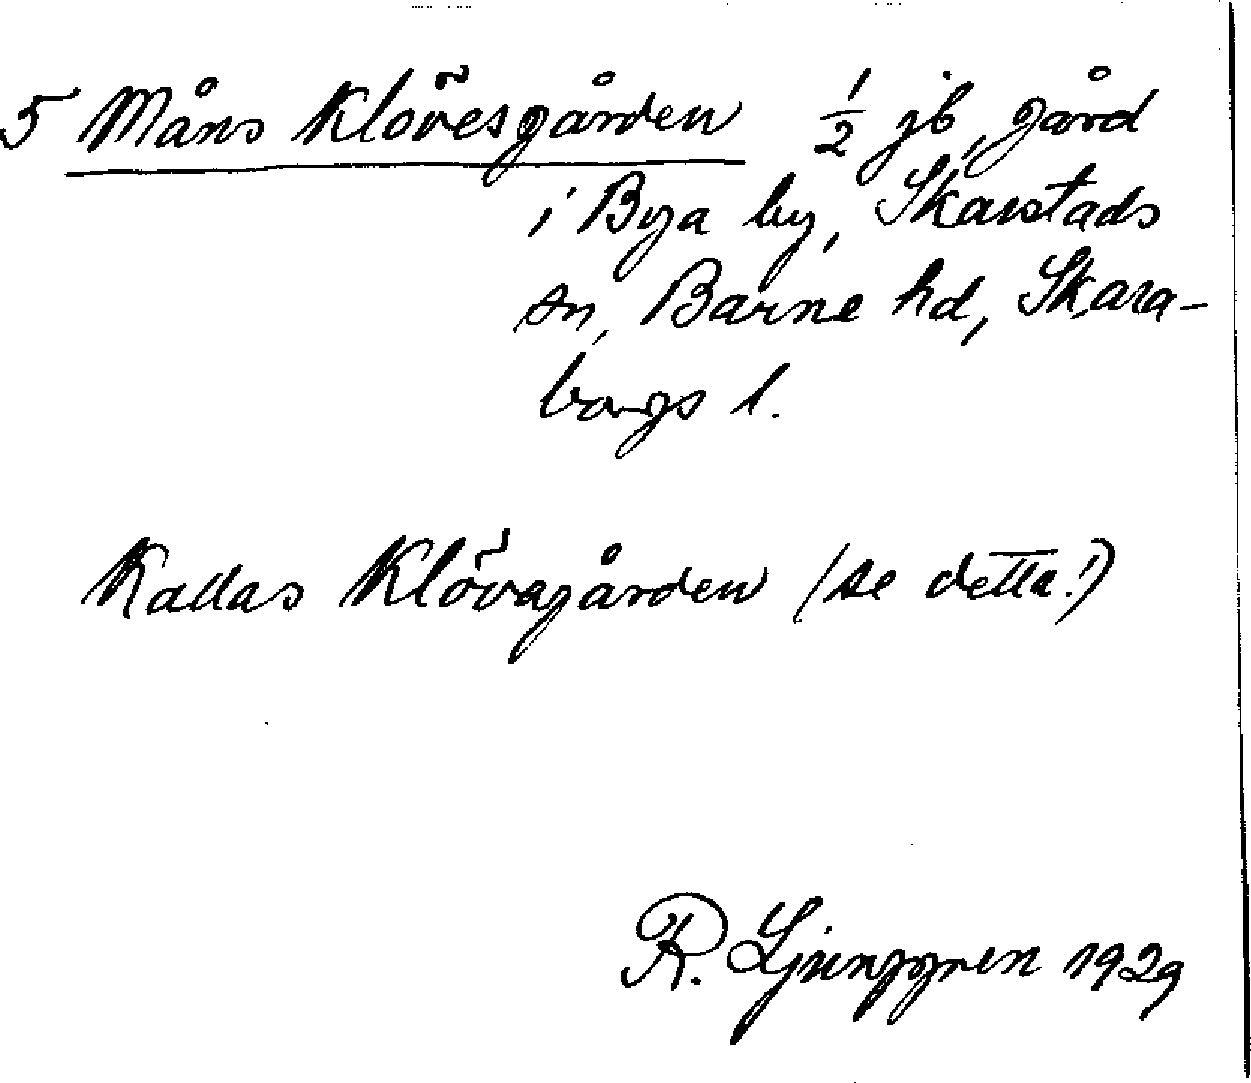 5 Måns Klövesgården ½ jb, gård
i Bya by, Skarstads
sn, Barne hd, Skara-
borgs l.
Kallas Klövagården (se detta!)
R. Ljunggren 1929